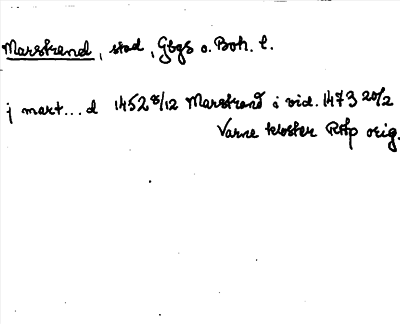 Marstrand, stad, Gbgs o. Boh. l.
j mart...d 1452 8/12 Marstrand i vid. 1473 20/2
Varne kloster RAp orig.